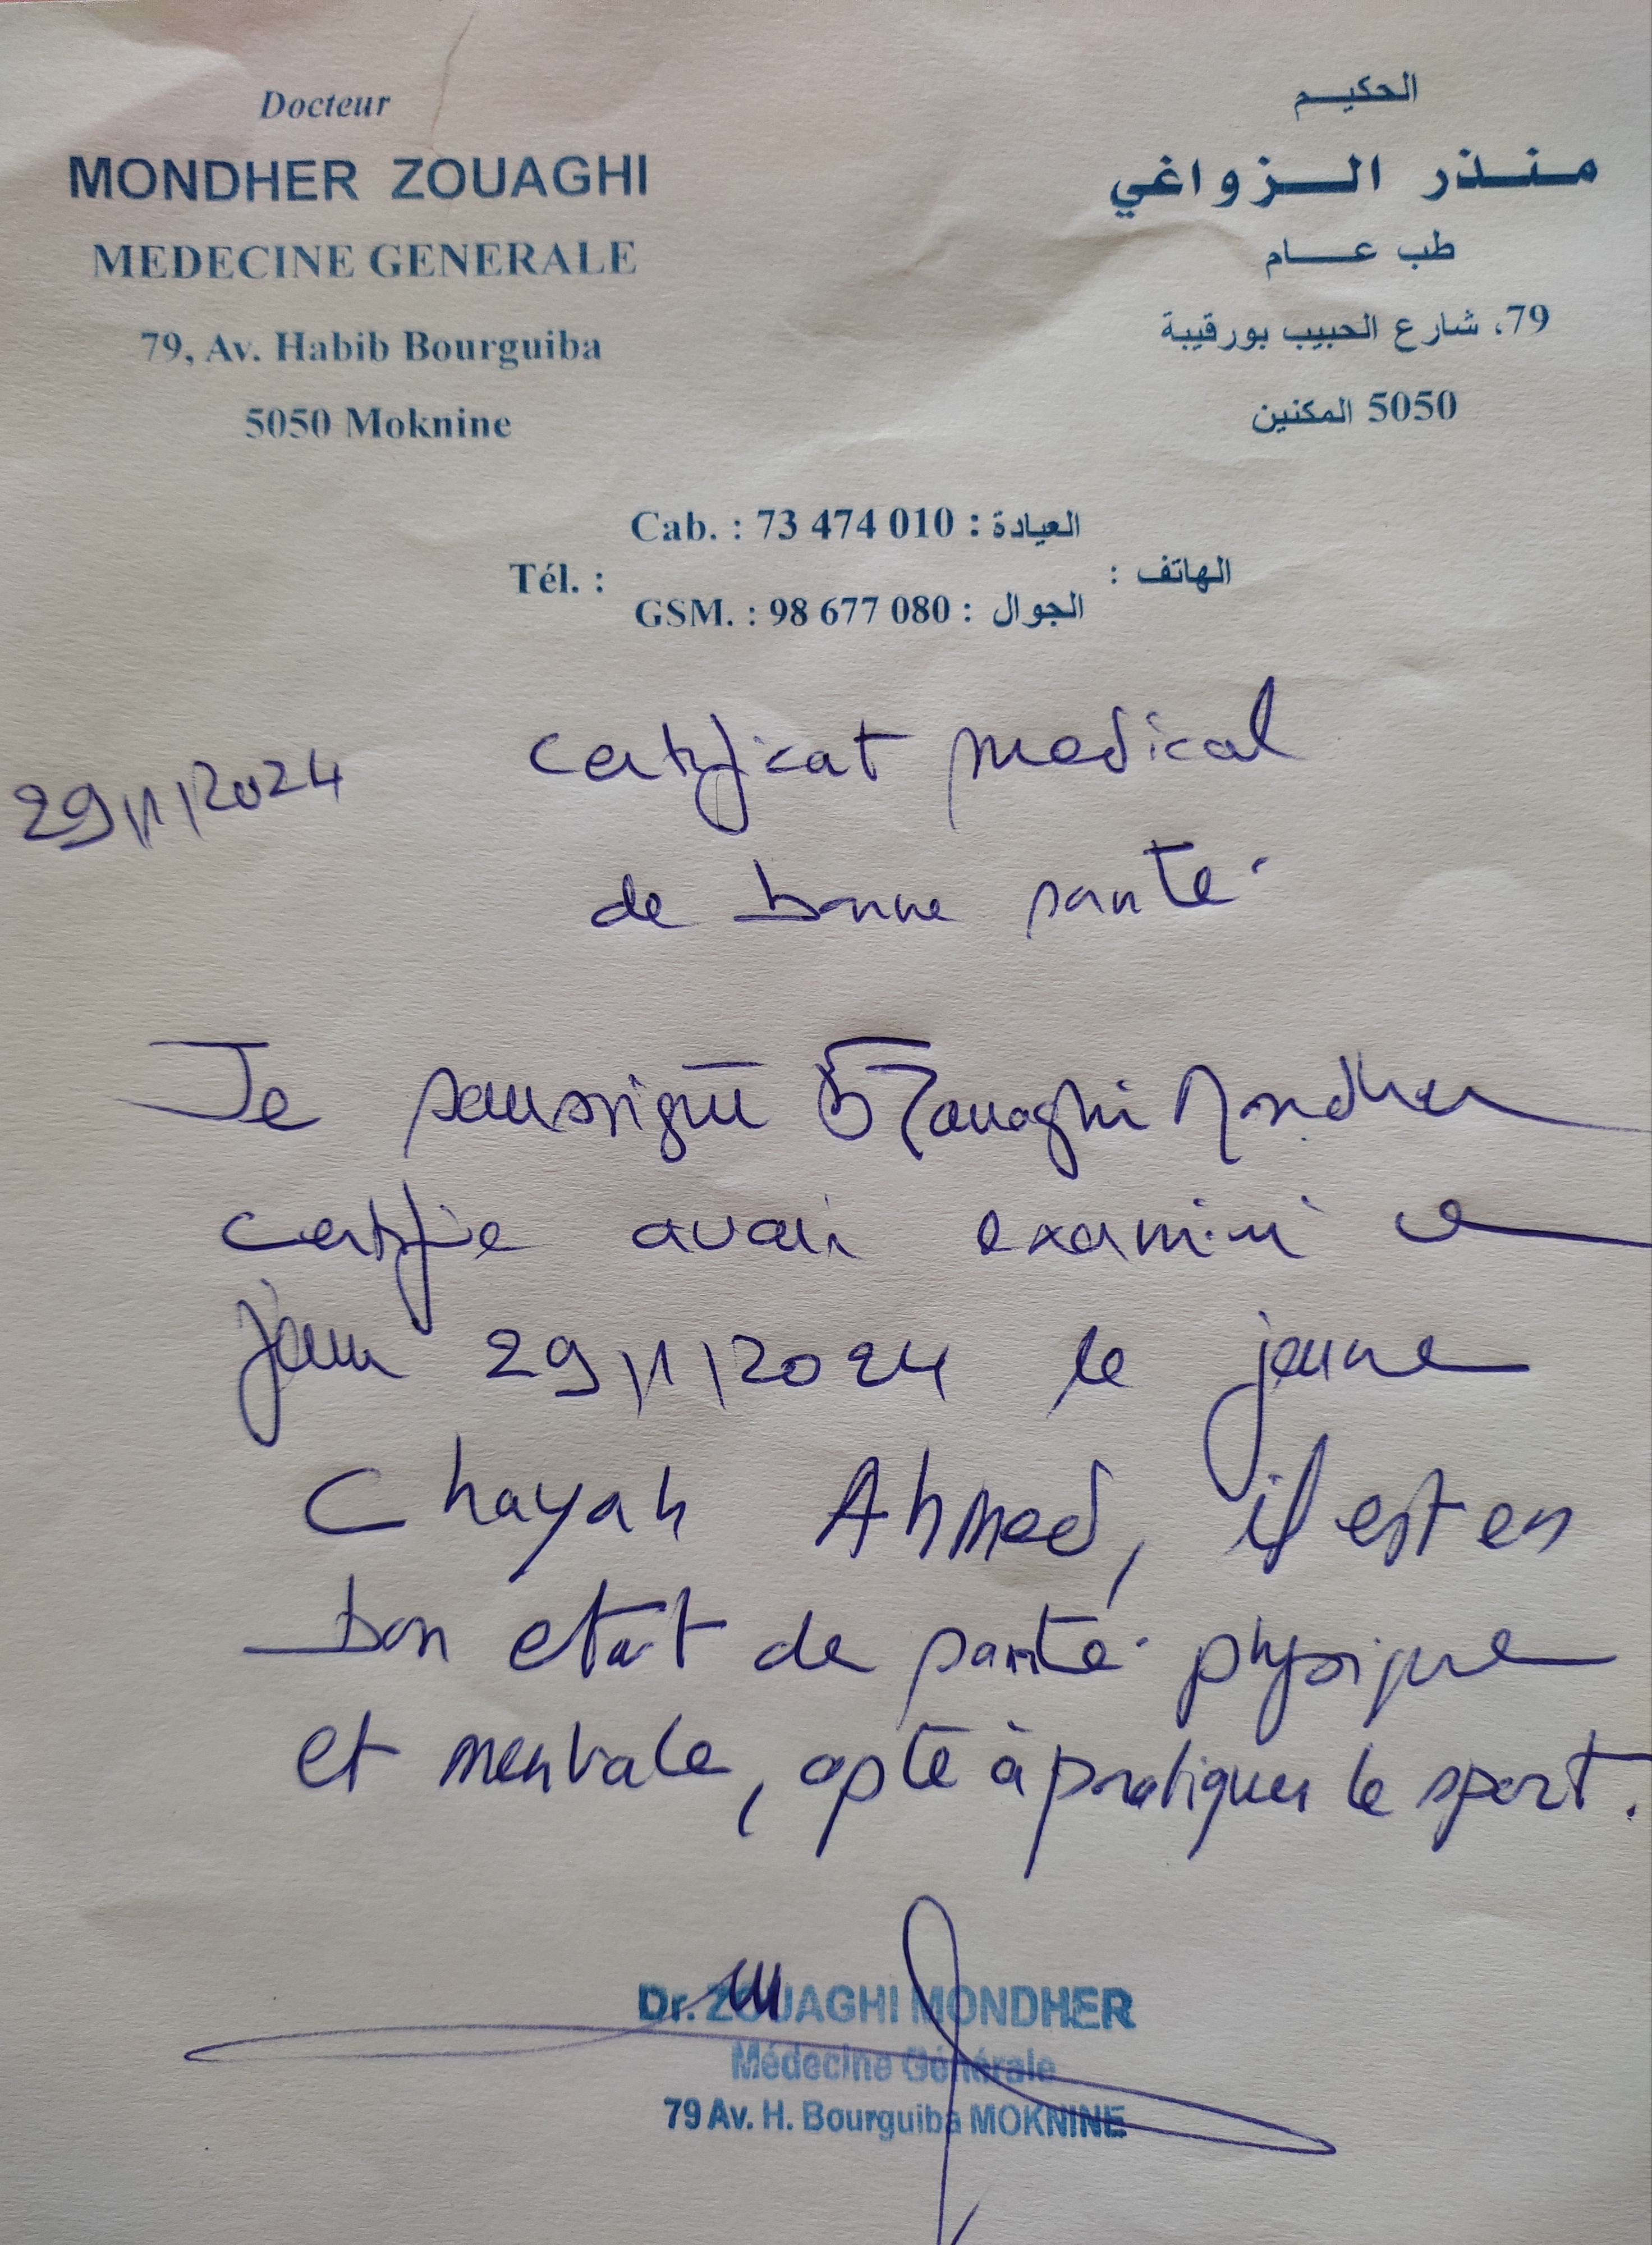 Docteur
MONDHER ZOUAGHI
MEDECINE GENERALE
79, Av. Habib Bourguiba
5050 Moknine
الحكيم
منذر الزواغي
طب عام
79، شارع الحبيب بورقيبة
5050 المكنين
Cab. : 73 474 010 : العيادة
Tél. : الهاتف :
GSM. : 98 677 080 : الجوال
29/11/2024
Certificat medical
de bonne santé
Je soussigné Dr Zouaghi Mondher
certifie avoir examiné ce
jour 29/11/2024 le jeune
Chayah Ahmed, il est en
bon etat de santé physique
et mentale, apte à pratiquer le sport.
Dr. ZOUAGHI MONDHER
Médecine Générale
79 Av. H. Bourguiba MOKNINE